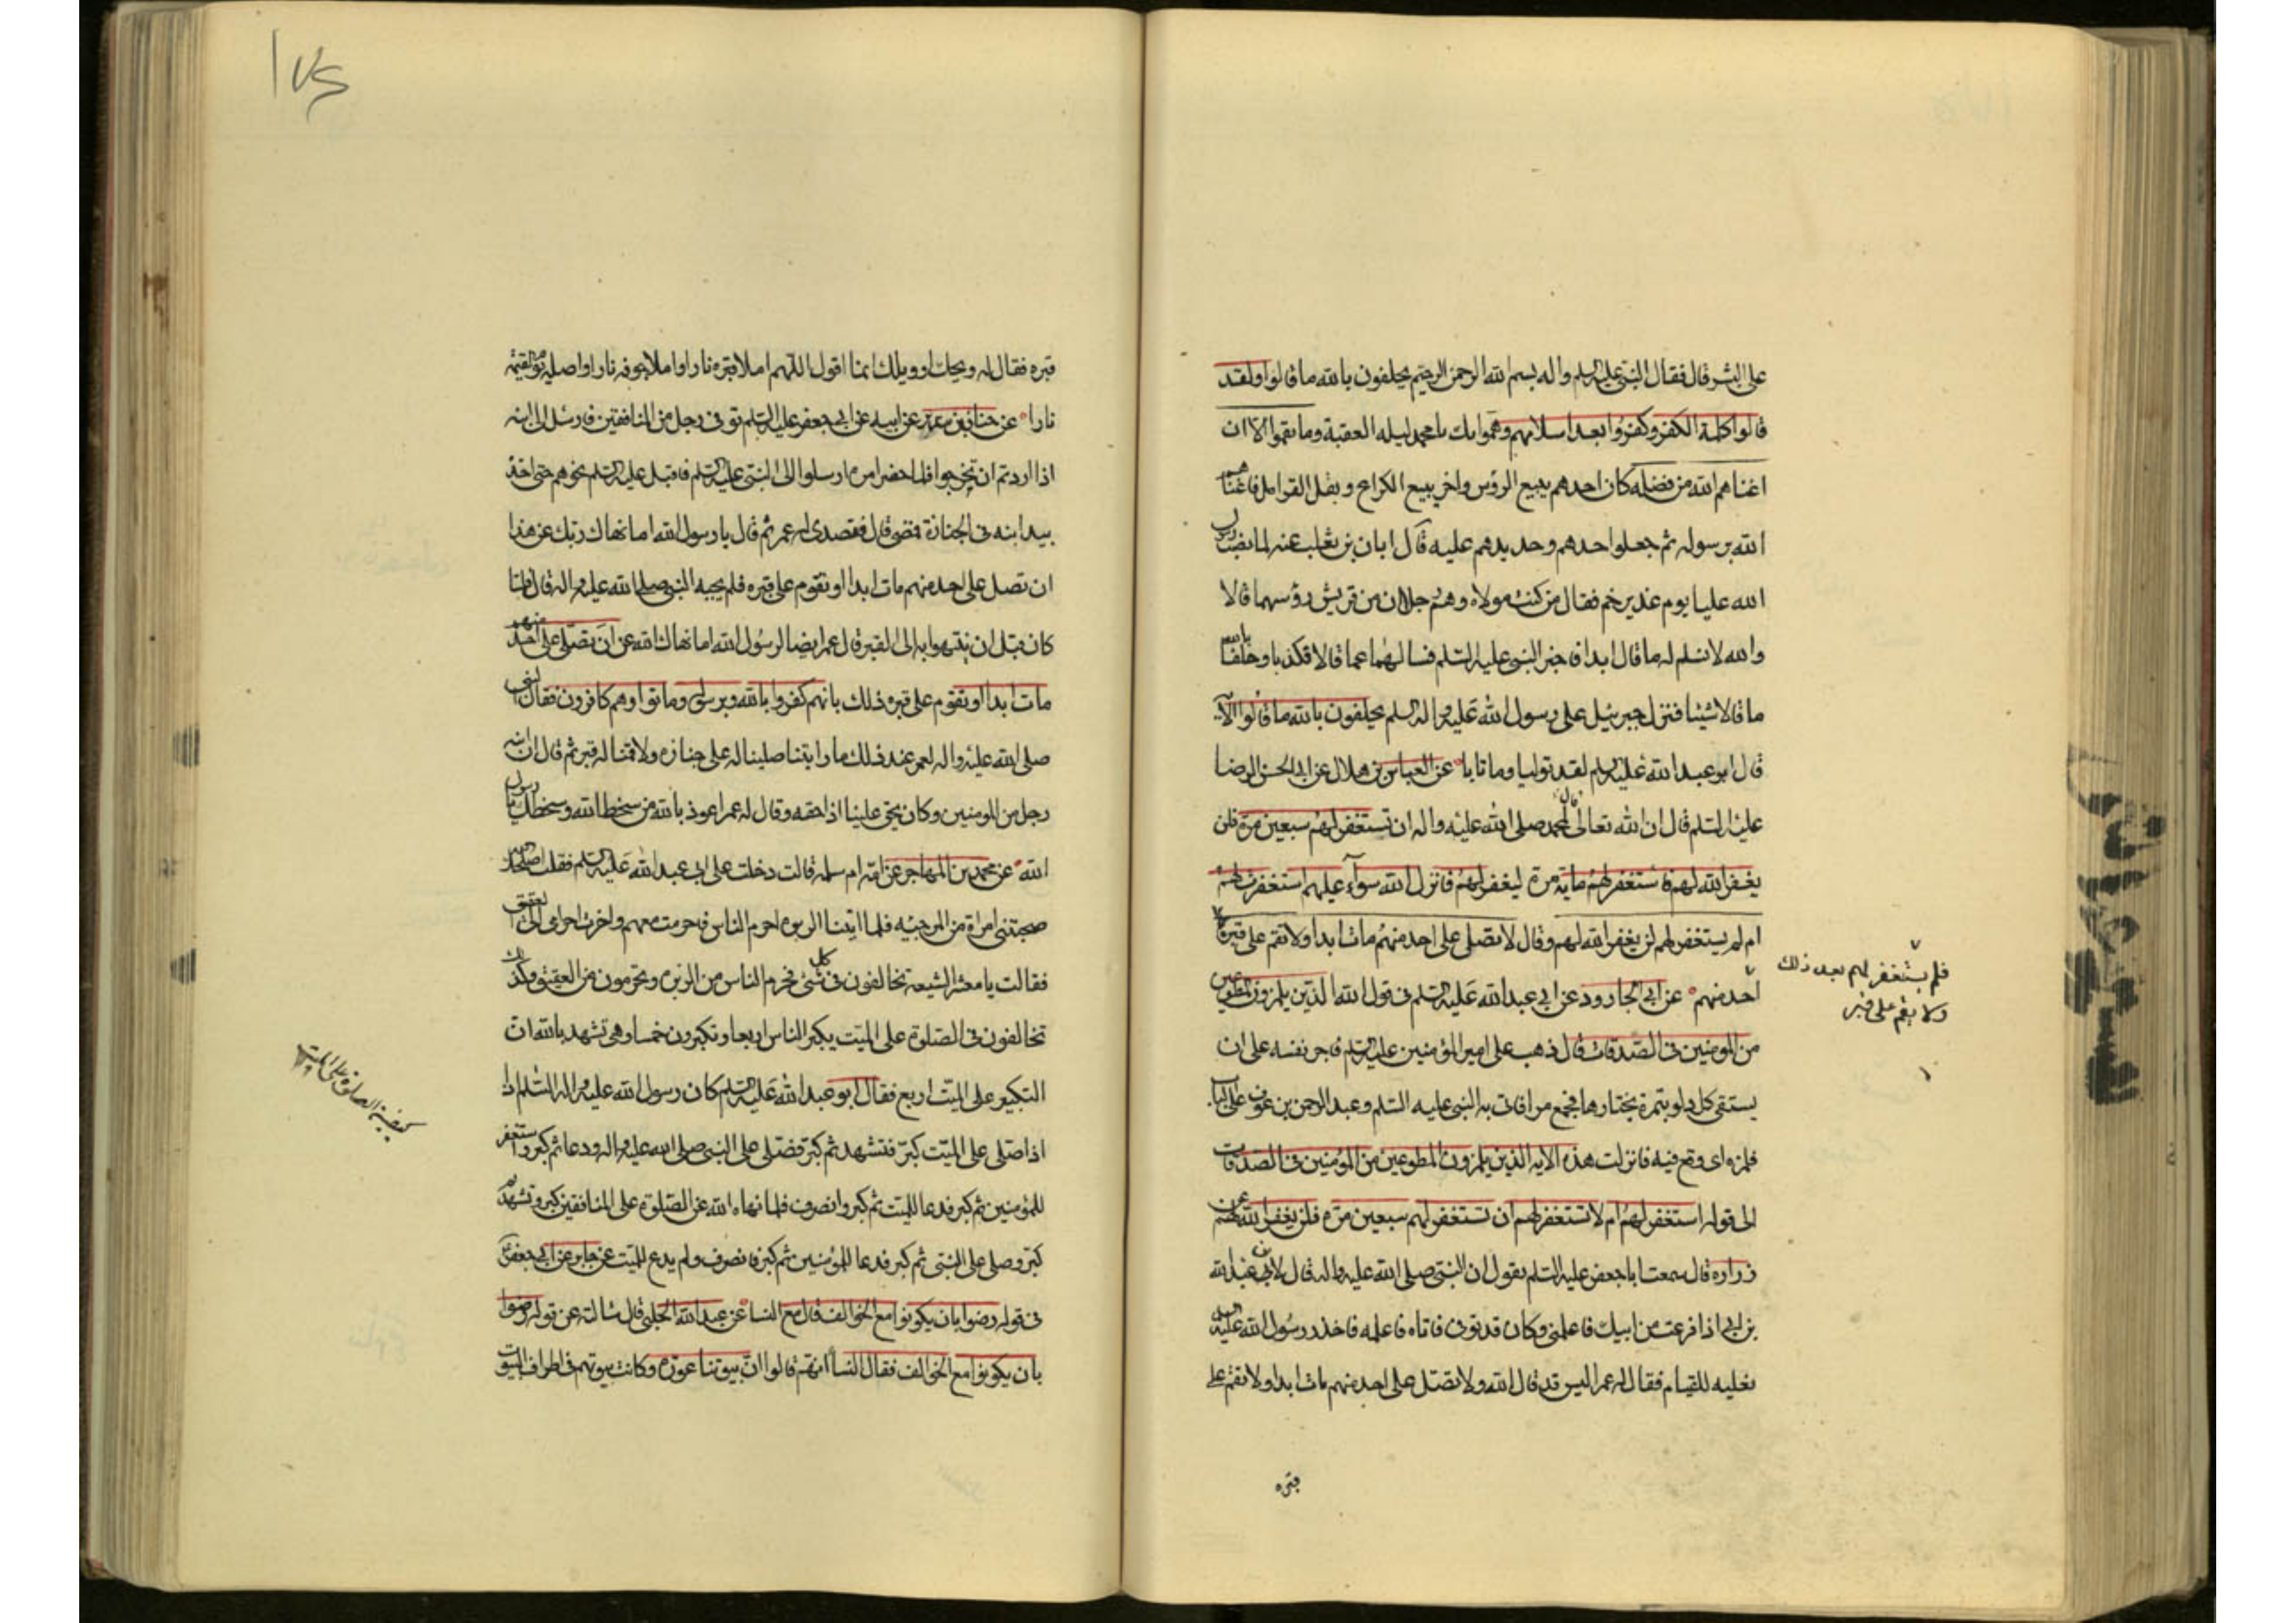 على البشر قال فقال النبي عليه السلم واله بسم الله الرحمن الرحيم يحلفون بالله ما قالوا ولقد
قالوا كلمة الكفر وكفروا بعد اسلامهم وهموا بك يا محمد ليله العقبة وما نقموا الا ان
اغناهم الله من فضله كان احدهم يبيع الرؤس واخر يبيع الكراع وبفل القرامل فاغناهم
الله برسوله ثم جعلوا حدهم وحديدهم عليه قال ابان بن تغلب عنه لما نصب رسول
الله عليا يوم غدير خم فقال من كنت مولاه وهم رجلان من قريش رؤسهما قالا
والله لا نسلم له ما قال ابدا فاخبر النبي عليه السلم فسالهما عما قالا فكذبا وحلفا بالله
ما قالا شيئا فنزل جبرئيل على رسول الله عليه واله السلم يحلفون بالله ما قالوا الآية
قال ابو عبد الله عليه السلم لقد توليا وما تابا عن العباس بن هلال عن ابي الحسن الرضا
عليه السلم قال ان الله تعالى قال لمحمد صلى الله عليه واله ان تستغفر لهم سبعين مرة فلن
يغفر الله لهم فاستغفر لهم ماية مرة ليغفر لهم فانزل الله سوآء عليهم استغفرت لهم
ام لم يستغفر لهم لن يغفر الله لهم وقال لا تصلى على احد منهم مات ابدا ولا تقم على قبره
احد منهم عن ابي الجارود عن ابي عبد الله عليه السلم في قول الله الذين يلمزون المطوعين
فلم يستغفر لهم بعد ذلك
ولا يقم على قبر
من المومنين في الصدقات قال ذهب على امير المؤمنين عليه السلم فاجر نفسه على ان
يستقى كل دلو بتمرة يختارها فجمع مرا فاتى به النبي عليه السلم وعبد الرحمن بن عوف على الباب
فلمزه اى وقع فيه فانزلت هذه الايه الذين يلمزون المطوعين من المؤمنين في الصدقات
الى قوله استغفر لهم ام لا تستغفر لهم ان تستغفر لهم سبعين مرة فلن يغفر الله لهم عن
زراره قال سمعت ابا جعفر عليه السلم يقول ان النبي صلى الله عليه واله قال لابن عبد الله
بن ابي اذا فرغت من ابيك فاعلمني وكان قد توفى فاتاه فاعلمه فاخذ رسول الله عليه السلم
نعليه للقيام فقال له عمر اليس قد قال الله ولا تصل على احد منهم مات ابدا ولا تقم على
قبره
قبره فقال له ويحك او ويلك انما اقول اللهم املا قبره نارا واملا جوفه نارا واصله يوم القيمة
نارا عن حنان بن سدير عن ابيه عن ابي جعفر عليه السلم توفى رجل من المنافقين فارسل الى ابنه
اذا اردتم ان تخرجوا فلما حضر امره ارسلوا الى النبي عليه السلم فاقبل عليه السلم نحوهم حتى اخذ
بيد ابنه في الجنازة فمضى قال فقصدى له عمر ثم قال يا رسول الله اما نهاك ربك عن هذا
ان تصل على احد منهم مات ابدا او تقوم على قبره فلم يجبه النبي صلى الله عليه واله قال فلما
كان قبل ان ينتهوا به الى القبر قال عمر ايضا لرسول الله اما نهاك الله عن ان تصلى على احد منهم
مات ابدا او تقوم على قبره ذلك بانهم كفروا بالله وبرسوله وماتوا وهم كافرون فقال النبي
صلى الله عليه واله لعمر عند ذلك ما رايتنا صلينا له على جنازه ولا قمنا له قبر ثم قال ان ابنه
رجل من المومنين وكان يحق علينا اذا حقه وقال له عمر اعوذ بالله من سخط الله وسخطك يا رسول
الله عن محمد بن المهاجر عن امه ام سلمه قالت دخلت على ابى عبد الله عليه السلم فقلت اصلحك الله
صحبتني امراة من المرجئيه فلما اتينا الربده احرم الناس فاحرمت معهم واخرت احرامى الى العقيق
فقالت يا معشر الشيعه تخالفون في كل شئ يحرم الناس من الربزه وتحرمون من العقيق وكذلك
تخالفون في الصلوة على الميت يكبر الناس اربعا وتكبرون خمسا وهي تشهد بالله ان
التكبير على الميت اربع فقال ابو عبد الله عليه السلم كان رسول الله عليه واله السلم اذا
اذا صلى على الميت كبر فتشهد ثم كبر فصلى على النبي صلى الله عليه واله ودعا ثم كبر واستغفر
للمؤمنين ثم كبر فدعا للميت ثم كبر وانصرف فلما نهاه الله عن الصلوة على المنافقين كبر وتشهد ثم
كبر وصلى على النبي ثم كبر فدعا للمؤمنين ثم كبر فانصرف ولم يدع للميت عن جابر عن ابي جعفر
في قوله رضوا بان يكونوا مع الخوالف قال مع النسا عن عبد الله الحلبي قال سالته عن قوله رضوا
بان يكونوا مع الخوالف فقال النسا انهم قالوا ان بيوتنا عورة وكانت بيوتهم في اطراف البيوت
كيفية الصلوة على الميت